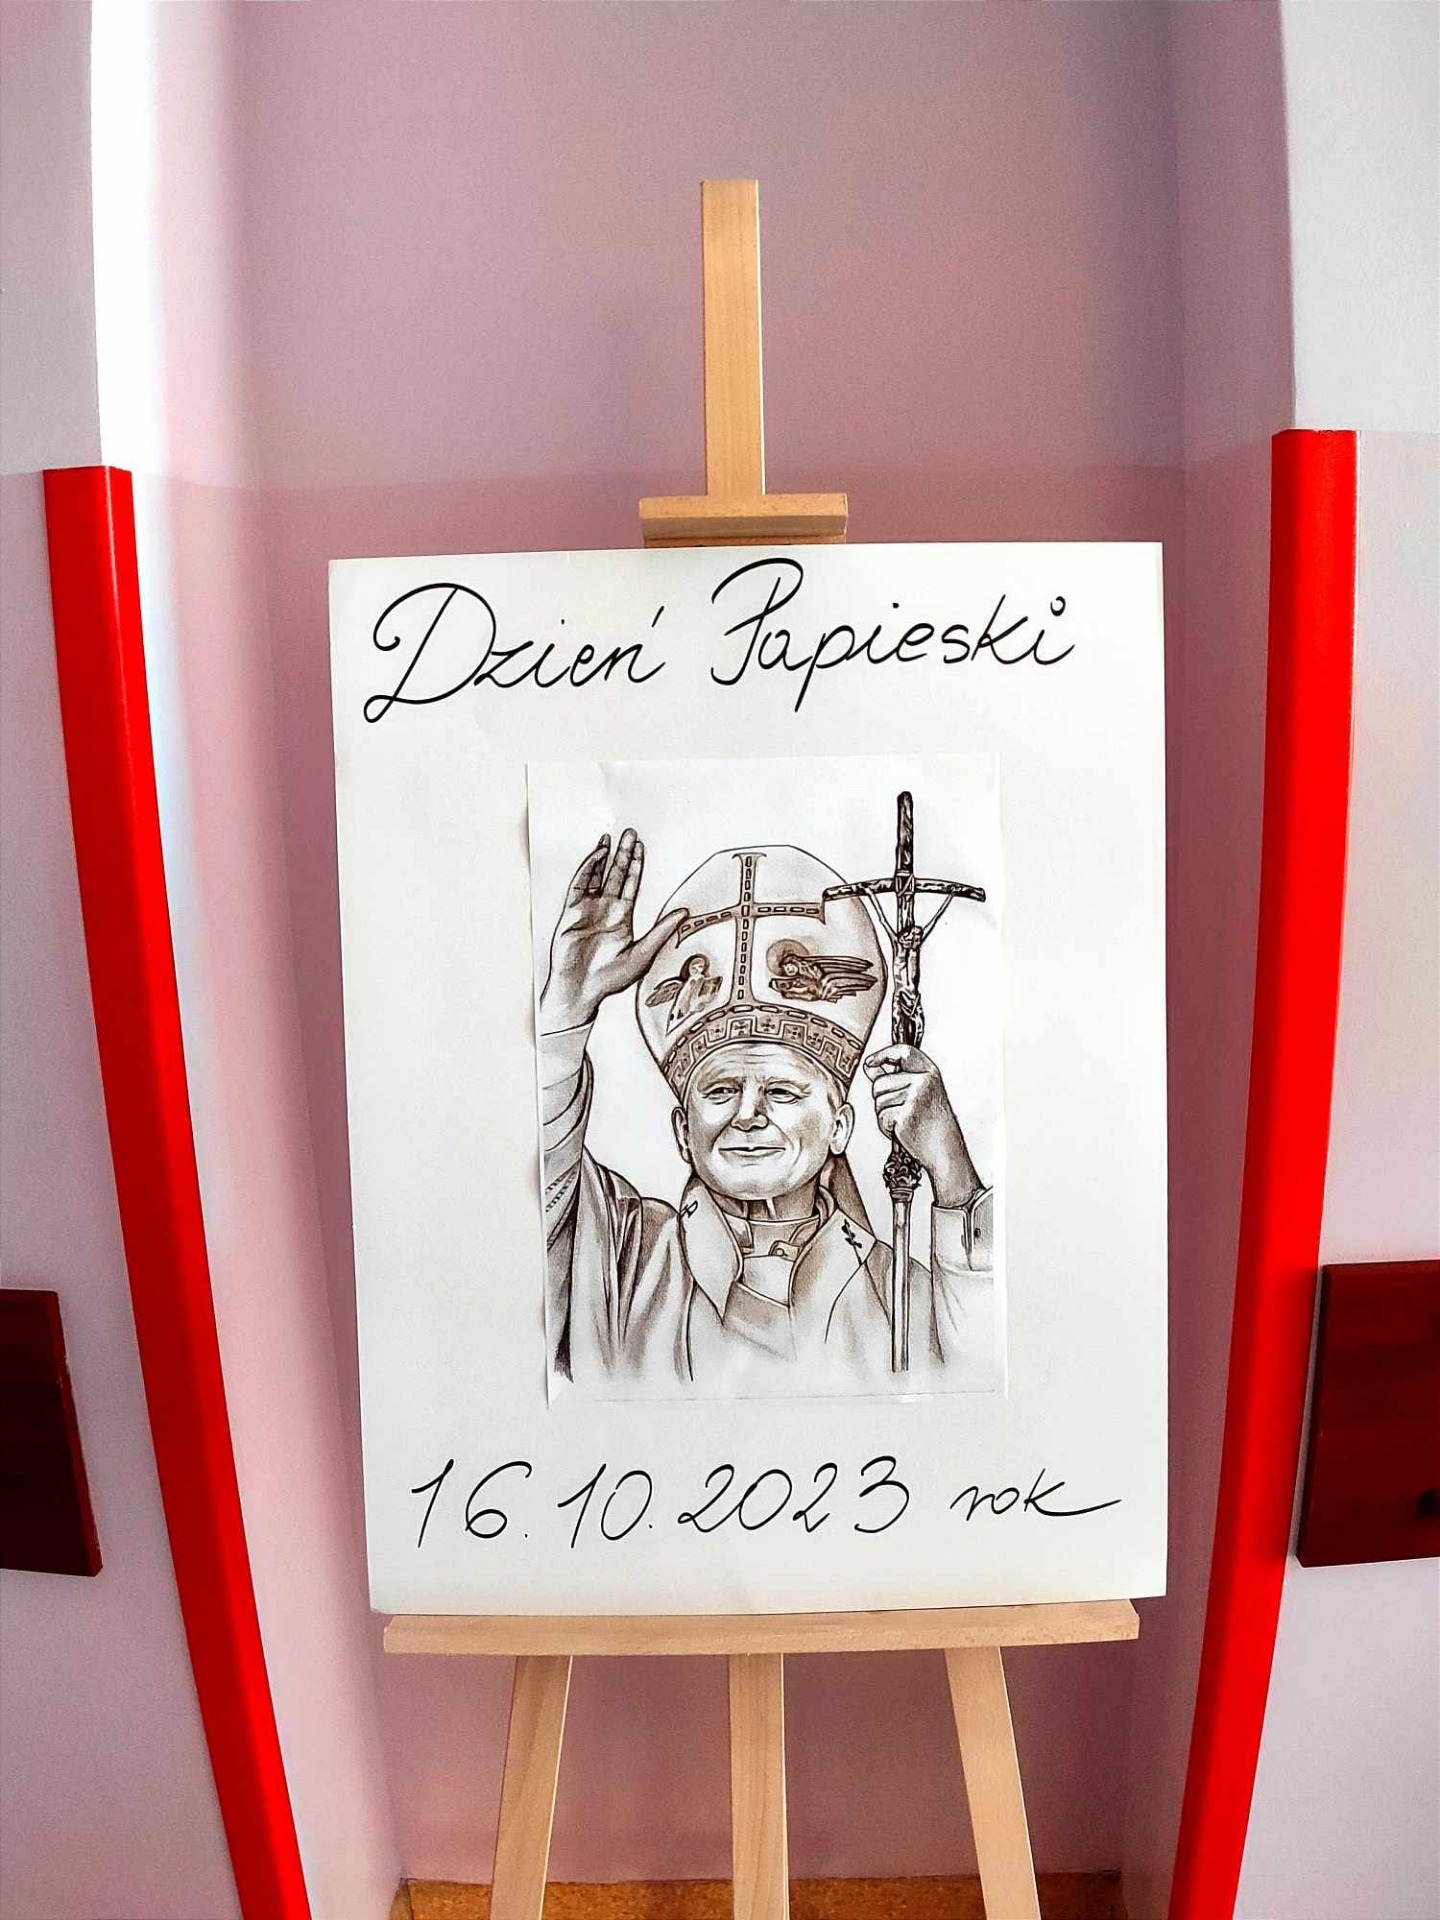 Dzień Papieski
16.10.2023 rok